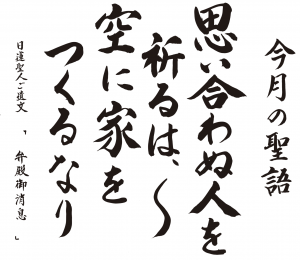 今月の聖語
思い合わぬ人を
祈るは、〱
空に家を
つくるなり
日蓮聖人ご遺文 「 弁殿御消息 」